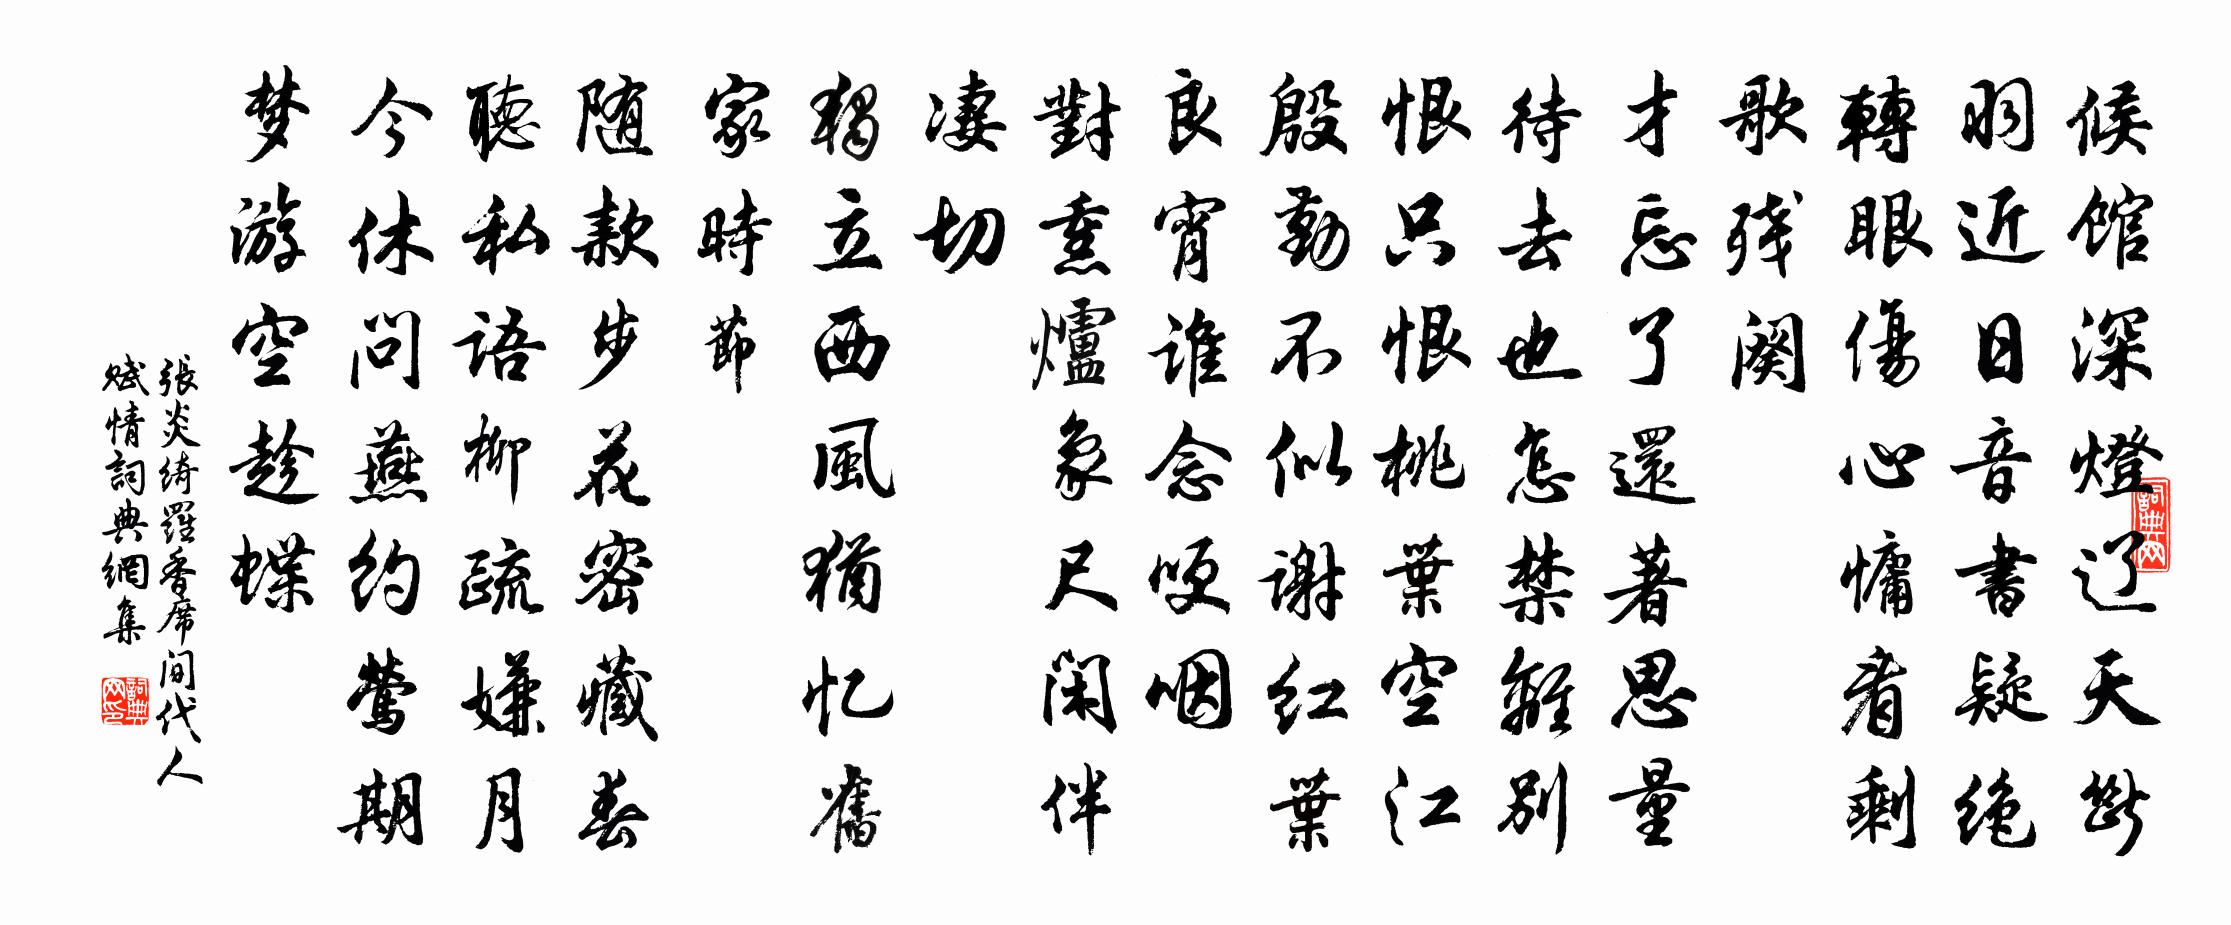 候馆深燈辽天斷
羽近日音書疑绝
轉眼傷心慵看剩
歌残闋
才忘了還著思量
待去也怎禁離别
恨只恨桃葉空江
殷勤不似谢红葉
良宵谁念哽咽
對熏爐象尺閑伴
凄切
獨立西風猶忆舊
家時節
随款步花密藏春
聽私語柳疏嫌月
今休問燕约鶯期
梦游空趁蝶
張炎绮羅香席间代人
赋情詞典網集
詞典网
詞典网印